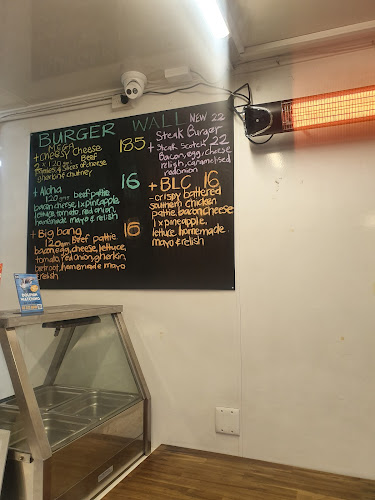 BURGER WALL
MEGA
+ Cheesy Cheese 18.5
2 x 120gm Beef
cheese
gherkin chutney
+ Aloha 16
120gm beef pattie
bacon, cheese, 1x pineapple,
lettuce, tomato, red onion,
homemade mayo & relish
+ Big bang 16
120gm Beef pattie
bacon, egg, cheese, lettuce,
tomato, red onion, gherkin,
beetroot, homemade mayo
& relish
NEW 22
Steak Burger
+ Steak Scotch 22
Bacon, egg, cheese
relish, caramelised
red onion
+ BLC 16
- crispy battered
southern chicken
pattie, bacon, cheese
1x pineapple,
lettuce, homemade
mayo & relish